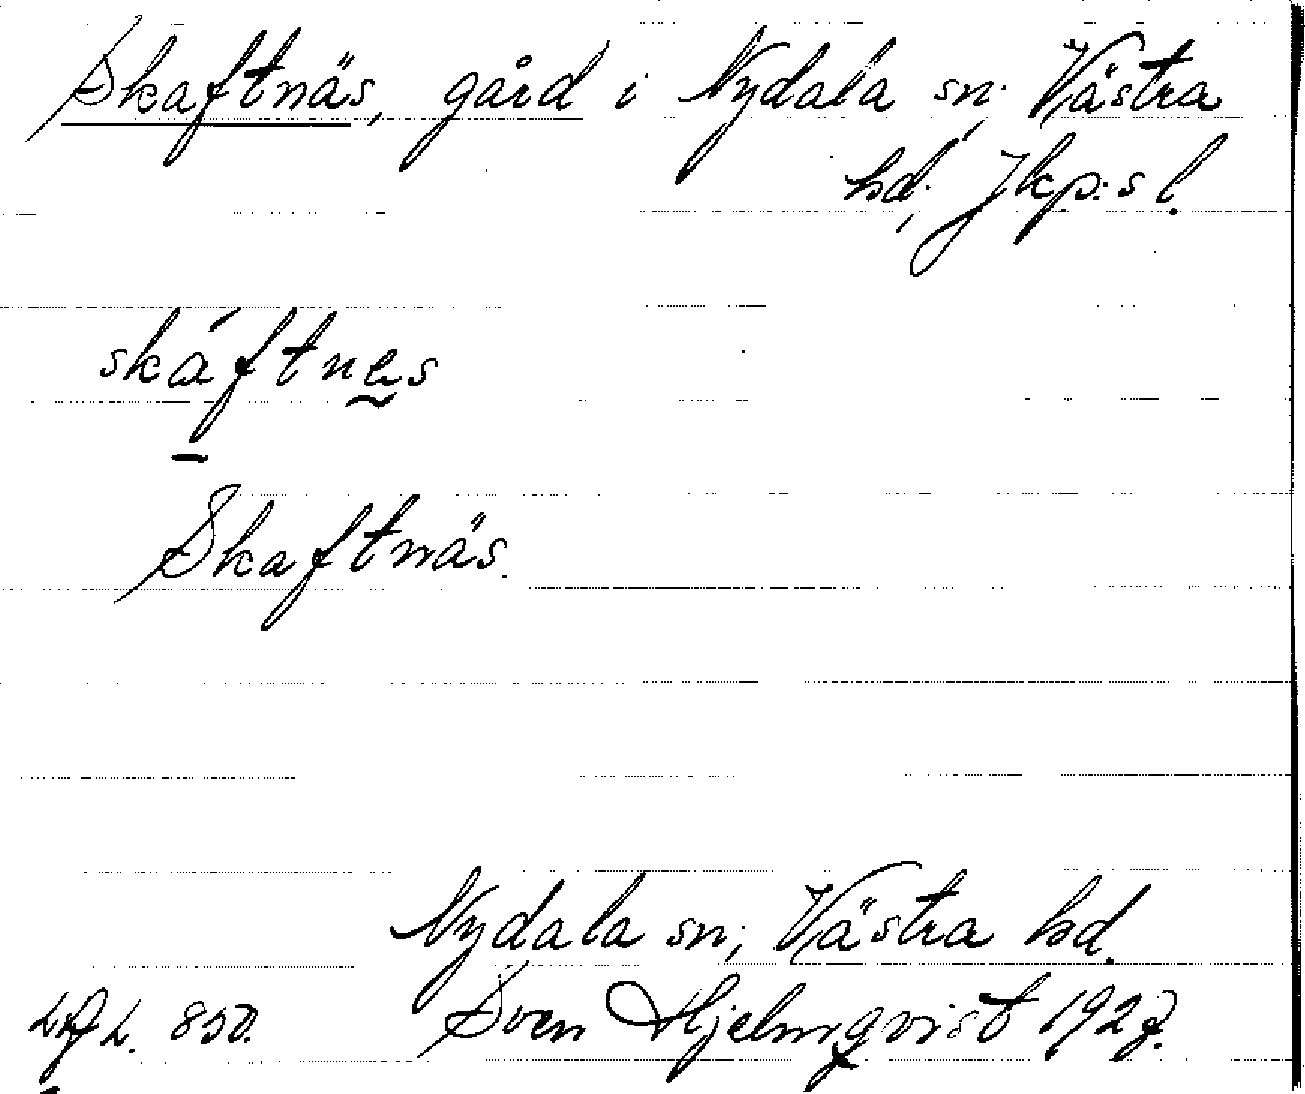 Skaftnäs, gård i Nydala sn; Västra
hd; Jkp:s l.
skáftnes
Skaftnäs.
Nydala sn; Västra hd.
850. Sven Hjelmqvist 1927.